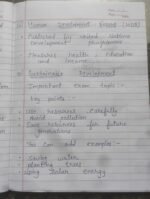 Human Development Report (HDR)
Published for United Nations
Development Programme
Measures health, Education
and Income
Sustainable Development
Important exam topic :-
Key points :-
Use resources carefully
Avoid pollution
Save resources for future
generations
You can add examples :-
Saving water
planting trees
Using Solar energy